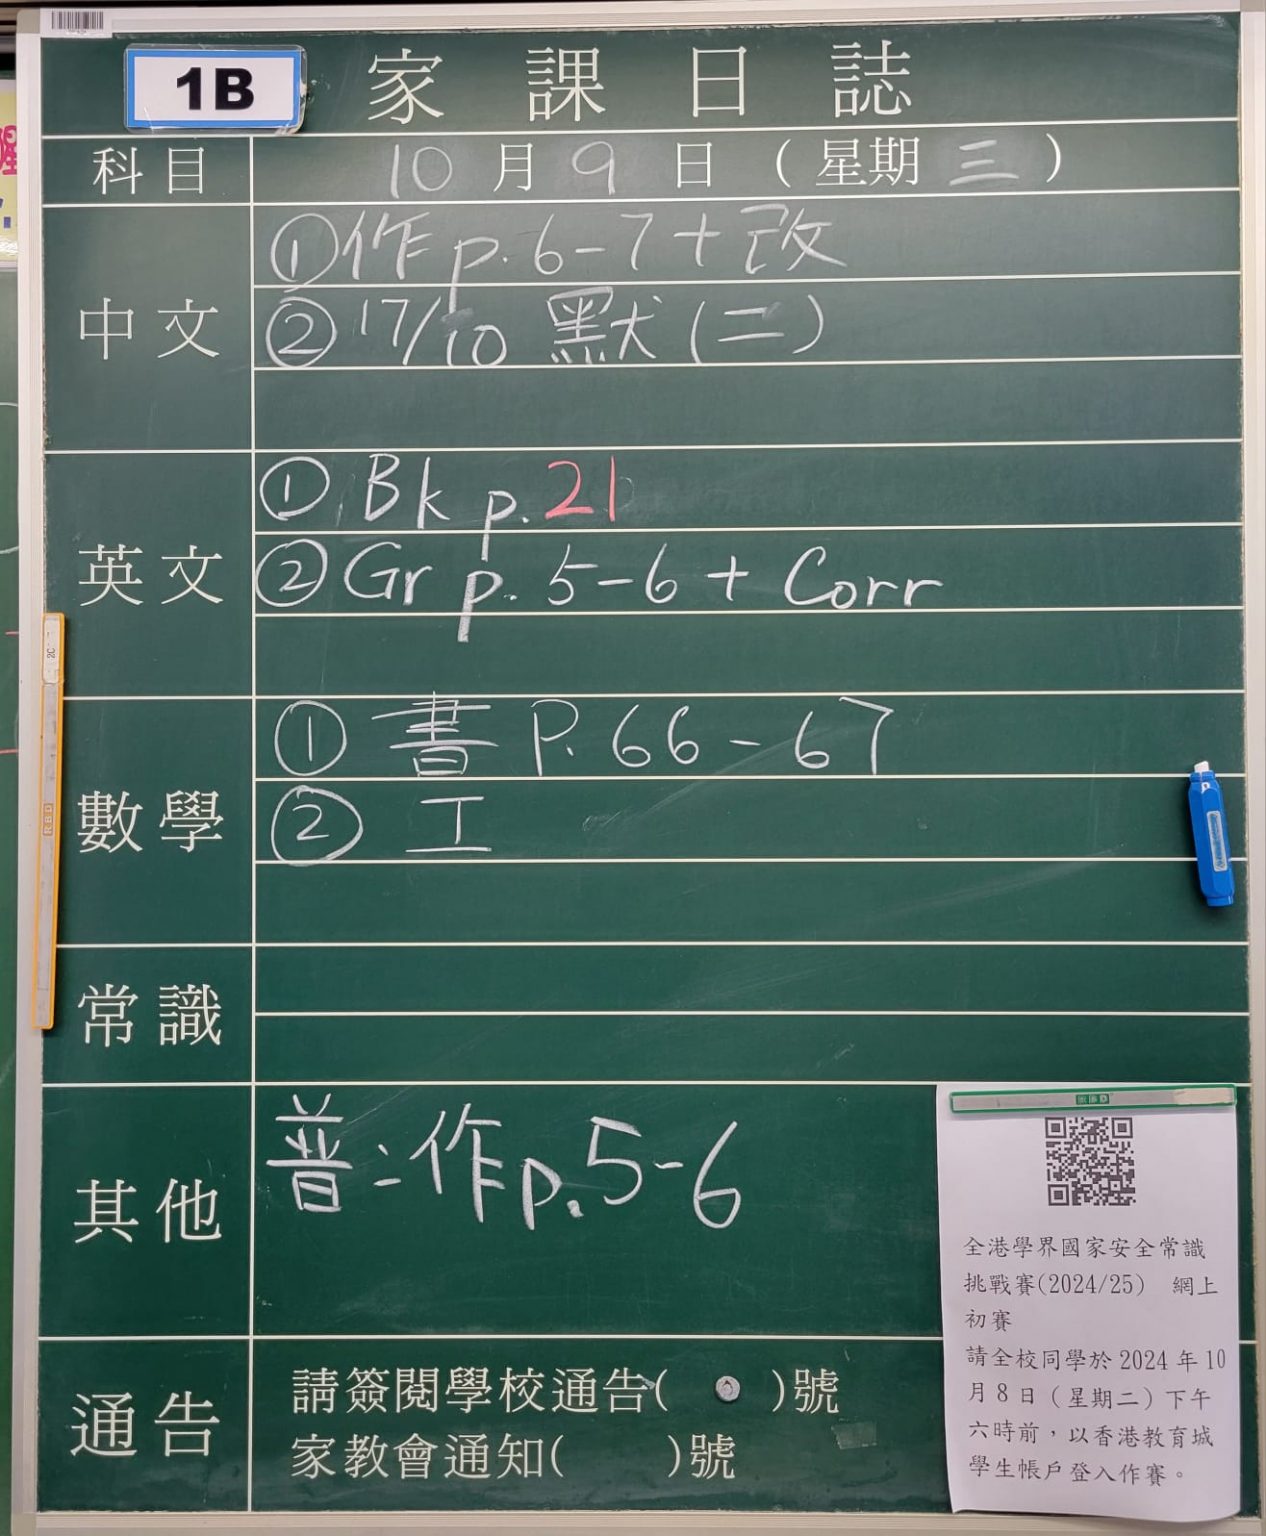 1B
家課日誌
科目 10月9日(星期三)
中文
①作p.6-7+改
②17/10 默(二)
英文
①Bk p.21
②Gr p.5-6 + Corr
數學
①書 P.66-67
②工
常識
其他
普:作p.5-6
通告
請簽閱學校通告( )號
家教會通知( )號
全港學界國家安全常識
挑戰賽(2024/25) 網上
初賽
請全校同學於 2024 年 10
月 8 日(星期二)下午
六時前,以香港教育城
學生帳戶登入作賽。
2C